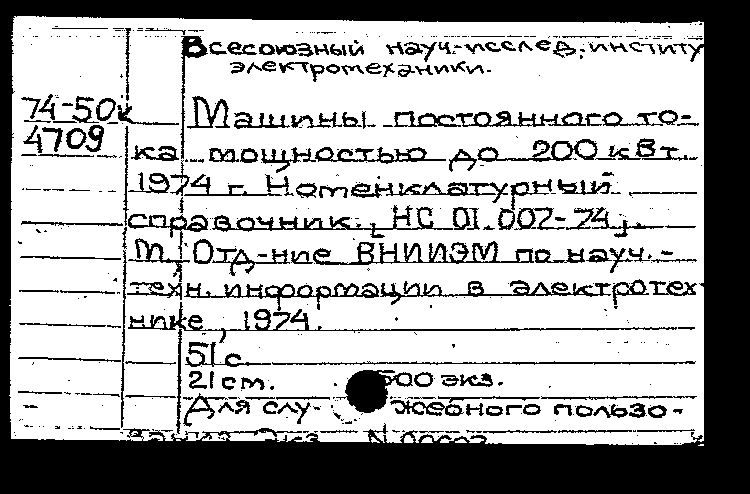 Всесоюзный науч.-исслед. институ
электромеханики.
74-50к
4709
Машины постоянного то-
ка мощностью до 200 кВт.
1974 г. Номенклатурный
справочник. [НС 01.002-74].
М., Отд-ние ВНИИЭМ по науч.-
техн. информации в электротех
нике, 1974.
51 с.
21 см. 500 экз.
Для слу- жебного пользо-
вания. Экз. N